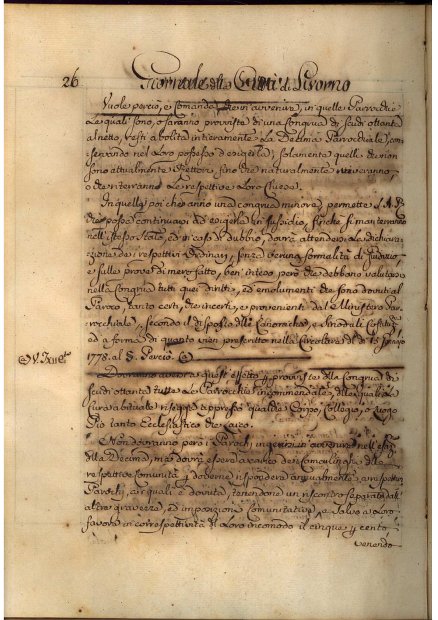 26 Giornale di Livorno
Vuole perciò, e comanda, che in avvenire, in quelle Parrocchie
Le quali sono, o saranno provviste di una Congrua di scudi ottanta
al netto, resti abolita intieramente La Decima Parrocchiale, con-
servando nel Loro possesso d'esigerla solamente quelle che non
sono attualmente
o che riterranno Le respettive Loro Chiese.
In quelle poi che anno una congrua minore, permette S. A. R.
che possa continuarsi ad esigerla in sussidio, finché si manterranno
nell'istesso stato, ed in casi di dubbio, dovrà attendersi La dichiara-
zione de i respettivi Ordinarj, senza veruna formalità di Giudizio,
e sulle prove di mero fatto, ben inteso però che debbono valutarsi
nella Congrua tutti quei diritti, ed emolumenti che sono dovuti al
Paroco, tanto certi, che incerti, e provenienti dal Ministero Par-
rocchiale, secondo il disposto
ed a forma di quanto vien prescritto nella Circolare del dì 15
1778. al §. Perciò
Dovranno aversi a quest'effetto p. provviste della Congrua di
scudi ottanta tutte Le Parrocchie delle quali La
Cura abituale risegga appresso qualche Corpo, Collegio, o Luogo
Pio tanto Ecclesiastico che Laico.
Non dovranno però i Parochi ingerirsi in avvenire nell'
della Decima, ma dovrà essere a carico dei Camarlinghi delle
respettive Comunità, che dovranno rispondere annualmente a i respettivi
Parochi, ai quali è dovuta, tenendone un riscontro separato dall'
altre gravezze, ed imposizioni Comunitative, e salvo a Loro
favore in correspettività di Loro incomodo il cinque p. cento
venendo